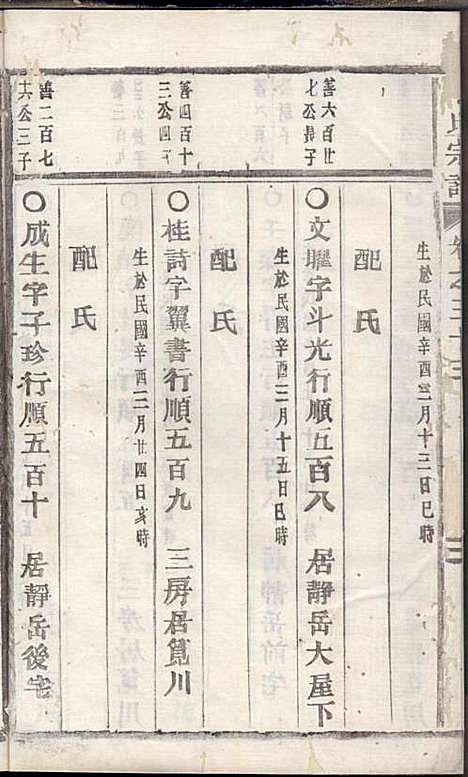 氏宗譜
卷之三十三
生於民國辛酉三月十三日巳時
配氏
善六百廿
七公長子
○文耀字斗光行順五百八 居靜岳大屋下
生於民國辛酉三月十五日巳時
配氏
善四百十
三公四子
○桂詩字翼書行順五百九 三房居筧川
生於民國辛酉三月廿四日亥時
配氏
善二百七
十六公三子
○成生字子珍行順五百十 居靜岳後宅